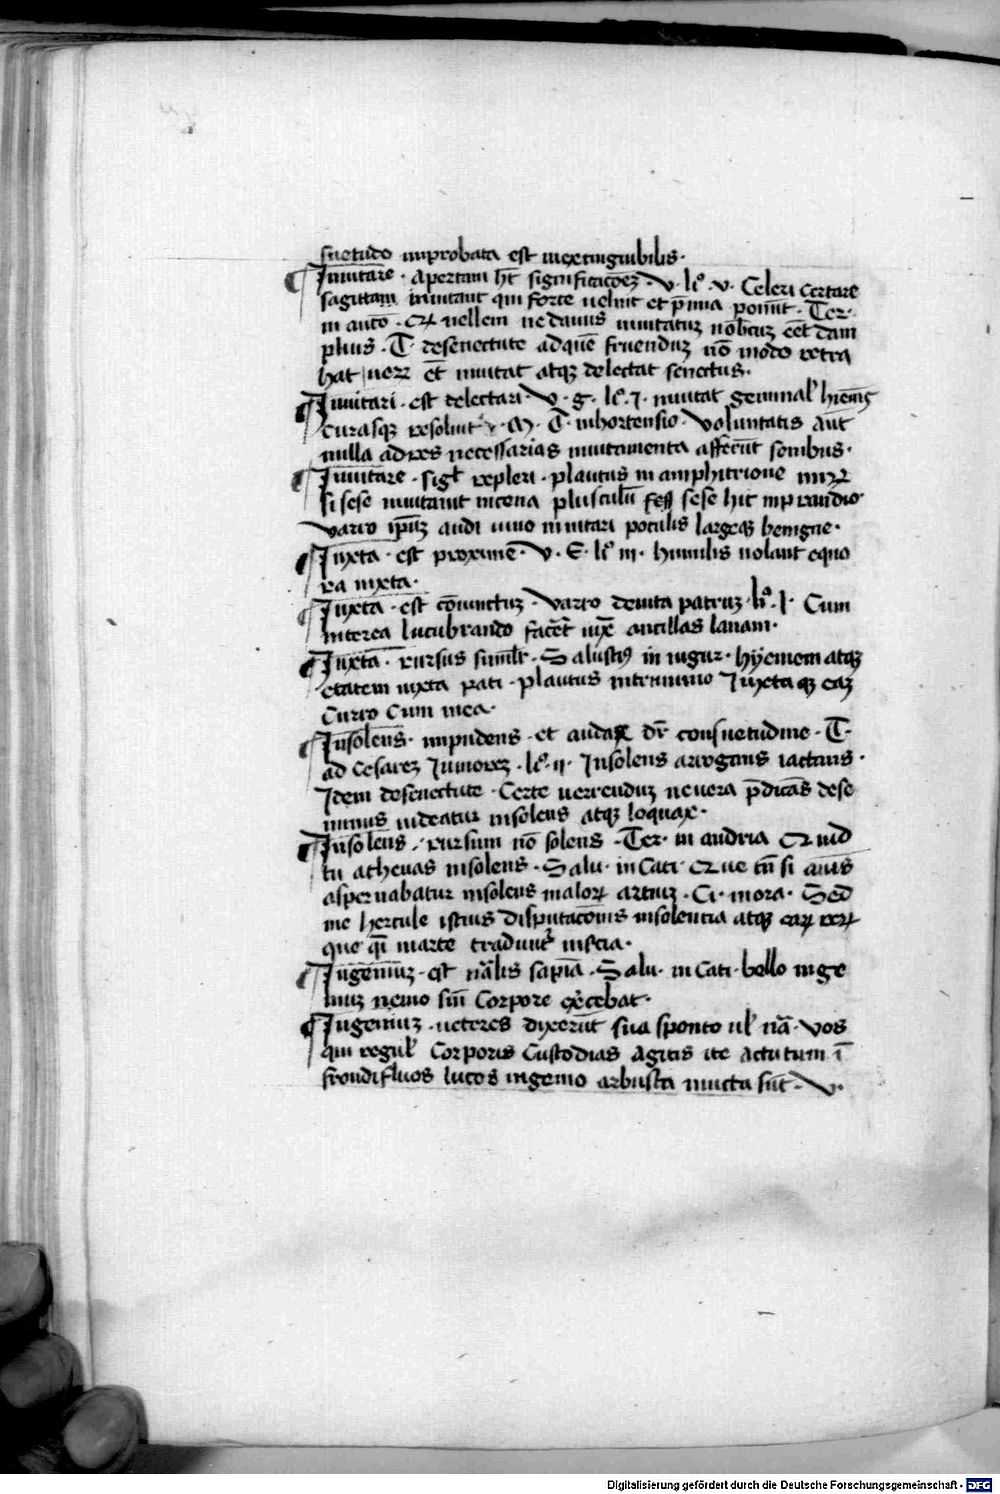 suetudo improbata est inextinguibilis.
¶ Inuitare. Apertam ht̄ significacōeʒ. v. li°. v. Celeri certare
sagittam inuitant qui forte uelint et p̄mia ponūt. Ter.
in aut̄o. Qꝛ uellem ne dauus inuitatuʒ nob̄cuʒ eēt dam
phus. T. desenectute ad quē fruenduʒ nō modo retra
hat ueꝝ et̄ inuitat atqʒ delectat senectus.
¶ Inuitari. est delectari. V. g. li°. I. inuitat geminal' hiemˢ
curasqʒ resoluit. M. T. inhortensio. voluntatis aut̄
nulla ad res necessarias inuitamenta afferūt senibus.
¶ Inuitare. sigt' repleri. plautus in amphitrione mirꝝ
si sese inuitauit incena plusculū sese hic inprandio
varro ip̄uʒ audi uino inuitari poculis largeqʒ benigne.
¶ Iuxta. est proximē. V. E. li° iii. humilis uolant equo
ra iuxta.
¶ Iuxta. est cōiunctuʒ. varro deuita patruʒ. li°. I. Cum
interea lucubrando facēt iux̄ ancillas lanam.
¶ Iuxta. rursus simil'r. Salustiꝰ in iugur. hÿemem atqʒ
etatem iuxta pati. plautus intrinumo Iuxta qʒ eaʒ
curro cum mea.
¶ Insolens. inpudens. et audax dr̄ consuetudine. T.
ad Cesareʒ Iunioreʒ. li°. ii. Insolens arrogans iactans.
Idem desenectute. Certe uerrenduʒ ne uera p̄dicās dese
nimus uideatur insolens atqʒ loquax.
¶ Insolens. rursum nō solens. Ter. in andria Qꝛ uid
tu athenas insolens. Salu. in Cati. Qꝛ ue tn̄ si anīs
aspernabatur insolens maloꝝ artiuʒ. Ci. in ora. Sed
me hercule istius disputacōnis insolentia atqʒ eaꝝ reꝝ
que qī in arte tradunt' inscia.
¶ Ingeniuʒ. est nālis sapīa. Salu. in Cati. bello inge
niuʒ nemo sin̄ corpore ex̄cebat.
¶ Ingeniuʒ. ueteres dixerūt sua sponto ul' nā. vos
qui regul' corporis custodias agitis ite actutum ī
frondifluos lucos ingenio arbusta iuncta sūt. V.
Digitalisierung gefördert durch die Deutsche Forschungsgemeinschaft - DFG